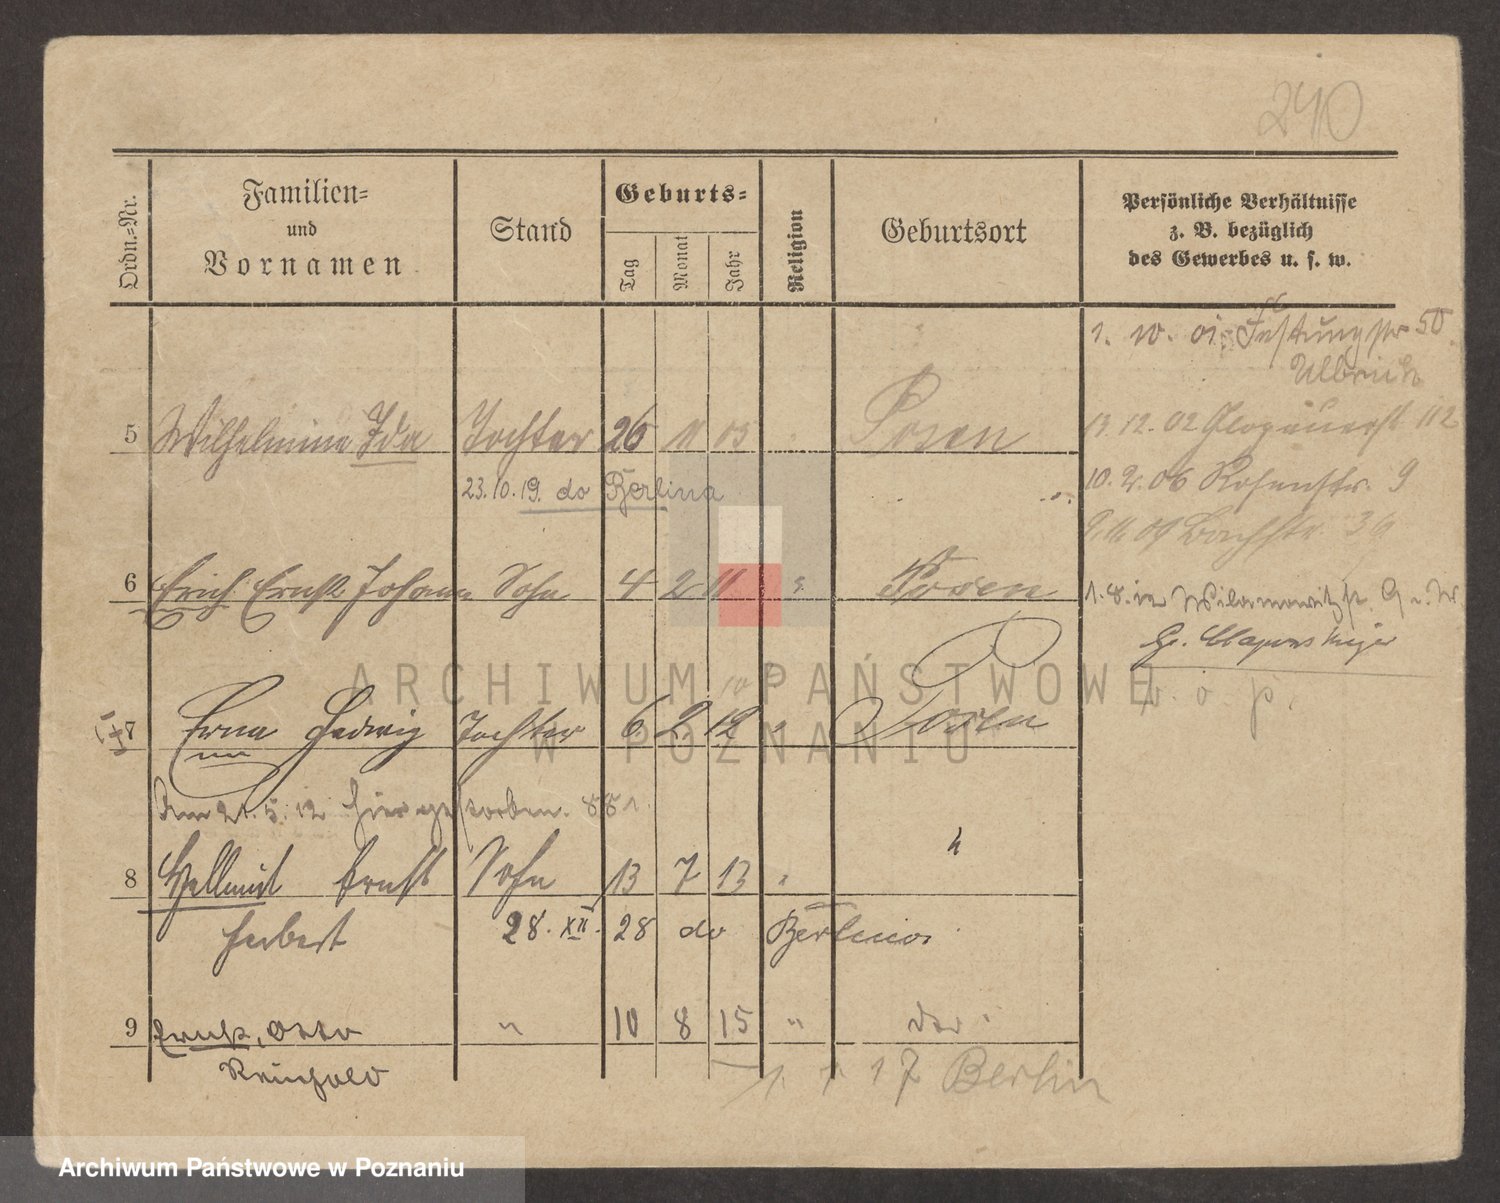 240
Ordn.-Nr.
Familien-
und
Vornamen
Stand
Geburts-
Tag
Monat
Jahr
Religion
Geburtsort
Persönliche Verhältnisse
z. B. bezüglich
des Gewerbes u. s. w.
1. 10. 01 Festungstr 50
Ulbrich
5 Wilhelmine Ida Tochter 26 11 05 Posen
12. 02 Glogauerst 112
23.10.19. do Berlina
10. 2. 06 Rosenstr. 9
09 Bachstr. 36
6 Erich Ernst Johann Sohn 4 2 11 " Posen
1. 8. 12 Wilamowitzst. 9
v. o. p.
7 Erna Hedwig Tochter 6. 2. 12 " Posen
Am 21. 5. 12 hier gestorben. 881.
8 Hellmut Ernst Sohn 13 7 13 " "
Herbert 28. XII. 28 do Berlina
9 Ernst, Otto " 10 8 15 " do.
Reinhold
1 1 17 Berlin
ARCHIWUM PAŃSTWOWE
W POZNANIU
Archiwum Państwowe w Poznaniu